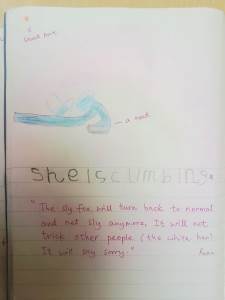 a nest
she is climbing.
"The sly fox will turn back to normal
and not sly anymore. It will not
trick other people (the white hen)
It will say sorry."